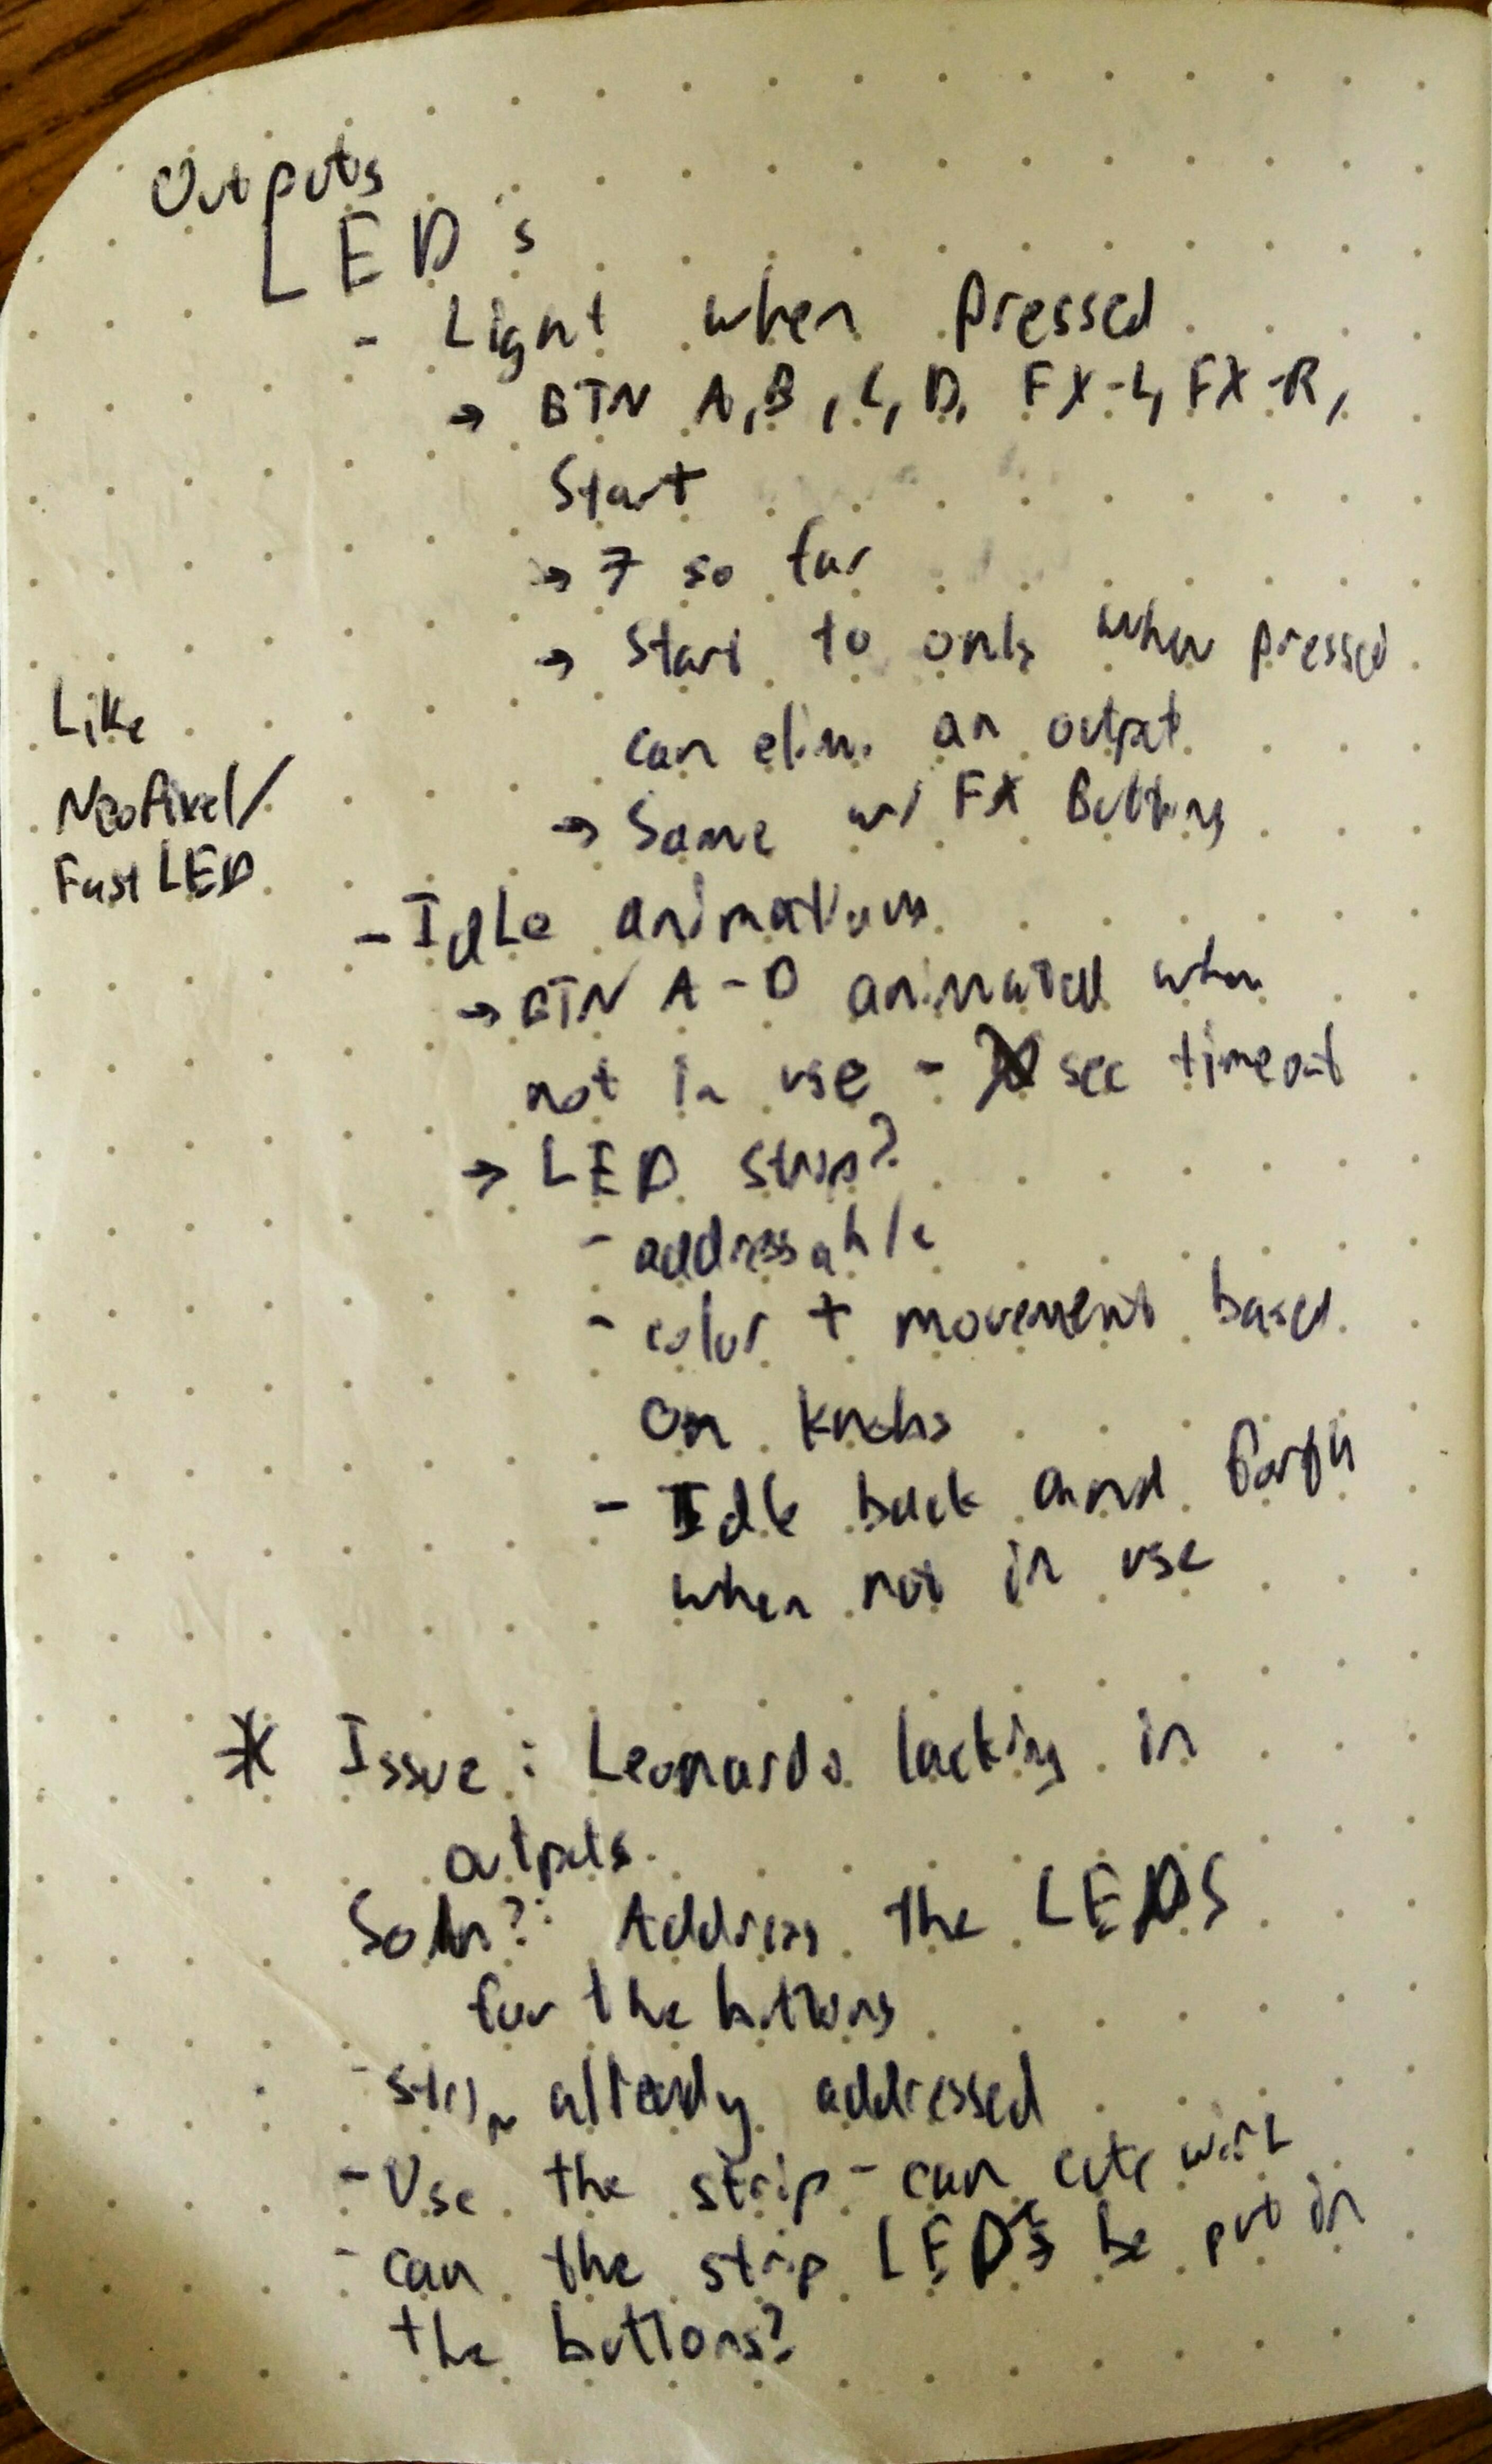 Outputs
LED's
- Light when pressed
→ BTN A, B, C, D, FX-L, FX-R,
Start
→ 7 so far
→ Start to only when pressed
can elim. an output
→ Same w/ FX Buttons
Like
NeoPixel/
FastLED
- Idle animations
→ BTN A-D animated when
not in use - sec timeout
→ LED strip?
- addressable
- color + movement based
on knobs
- Idle back and forth
when not in use
* Issue: Leonardo lacking in
outputs.
Soln?: Address the LEDS
for the buttons
- strip already addressed
- Use the strip - can cut
- can the strip LEDs be put in
the buttons?